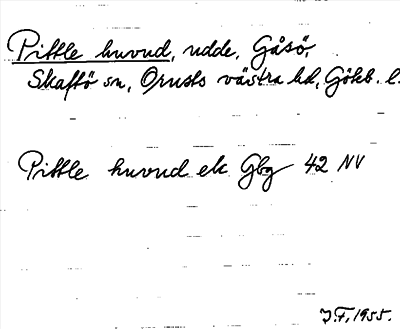 Pittle huvud, udde, Gåsö,
Skaftö sn, Orusts västra hd, Göteb. l.
Pittle huvud ek Gbg 42 NV
J.F. 1955.